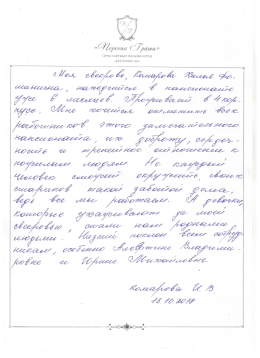 «Первая Грань»
Моя свекровь, Комарова Халья Фо-
минична, находится в пансионате
уже 8 месяцев. Проживает в 4 кор-
пусе. Мне хочется отметить всех
работников этого замечательного
пансионата, их доброту, сердеч-
ность и трепетное отношение к
пожилым людям. Не каждый
человек сможет окружить своих
стариков такой заботой дома,
ведь все мы работаем. А девочки,
которые ухаживают за моей
свекровью, стали нам родными
людьми. Низкий поклон всем сотруд-
никам, особенно Алевтине Владими-
ровне и Ирине Михайловне.
Комарова И В
13.10.2018